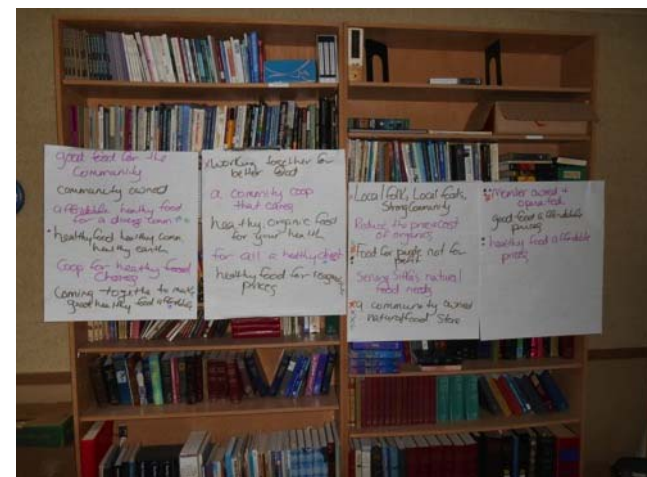 good food for the
Community
community owned
affordable healthy food
for a diverse comm
healthy food healthy comm
healthy earth
Coop for healthy food
Choices
Coming together to make
great healthy food affordable
Working together for
better food
a commity coop
that cares
healthy, organic food
for your health
for all a healthy
healthy food for
prices
Local folk, Local Eats,
Strong Community
Reduce the cost
of organics
Food for people not for
profit
Serving Sitka's natural
food needs
a community owned
natural food Store
member owned +
operated
good food @ affordable
prices
healthy food affordable
prices